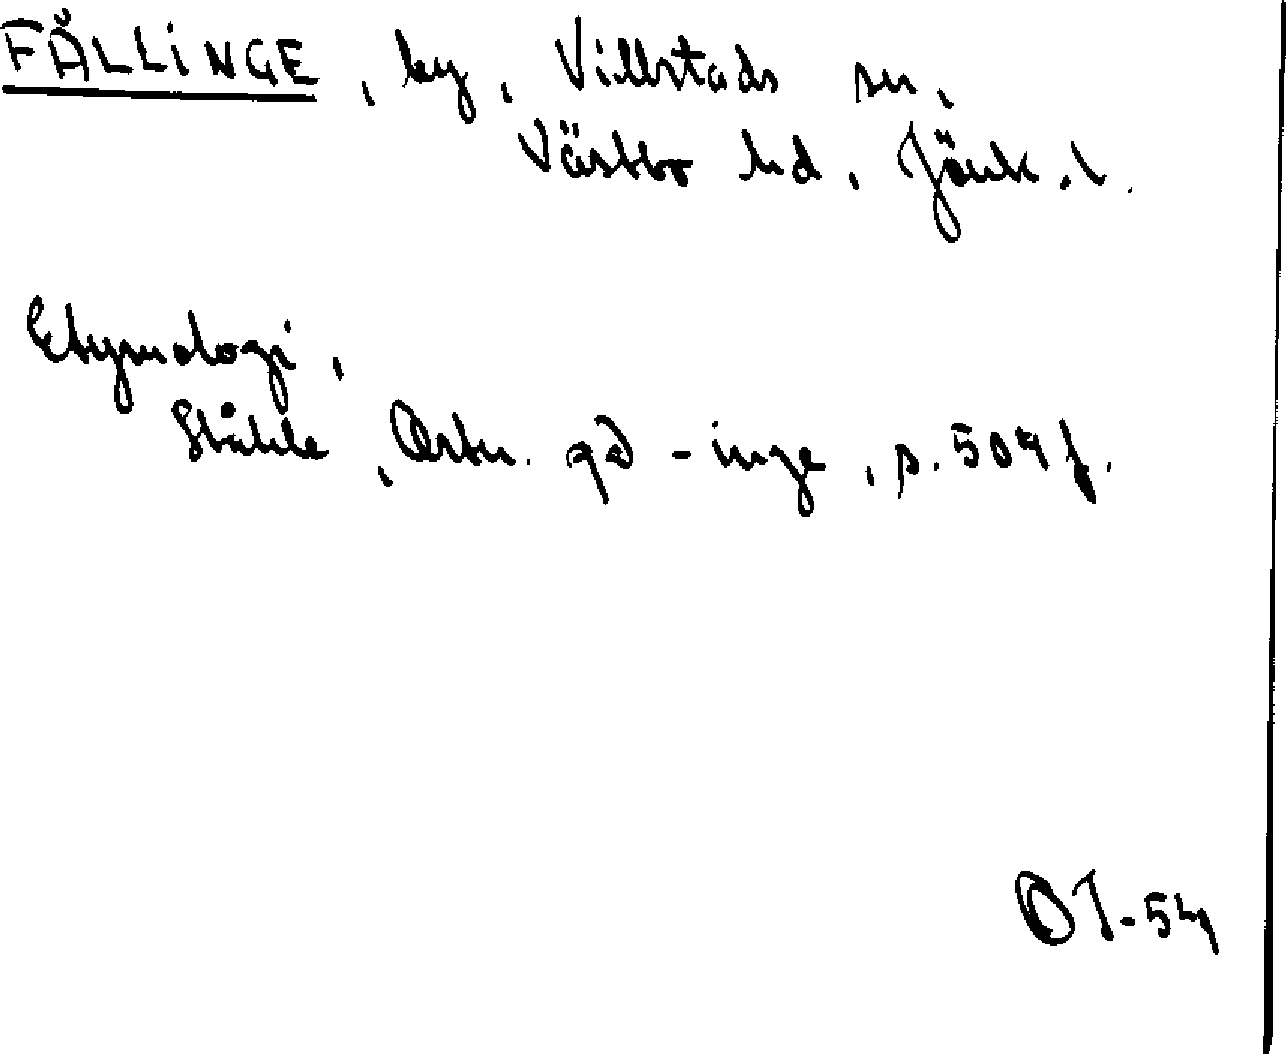 FÄLLINGE, by, Villstads sn,
Västbo hd, Jönk. l.
Etymologi,
Ståhle, Ortn. på -inge, s. 509 f.
OT-54